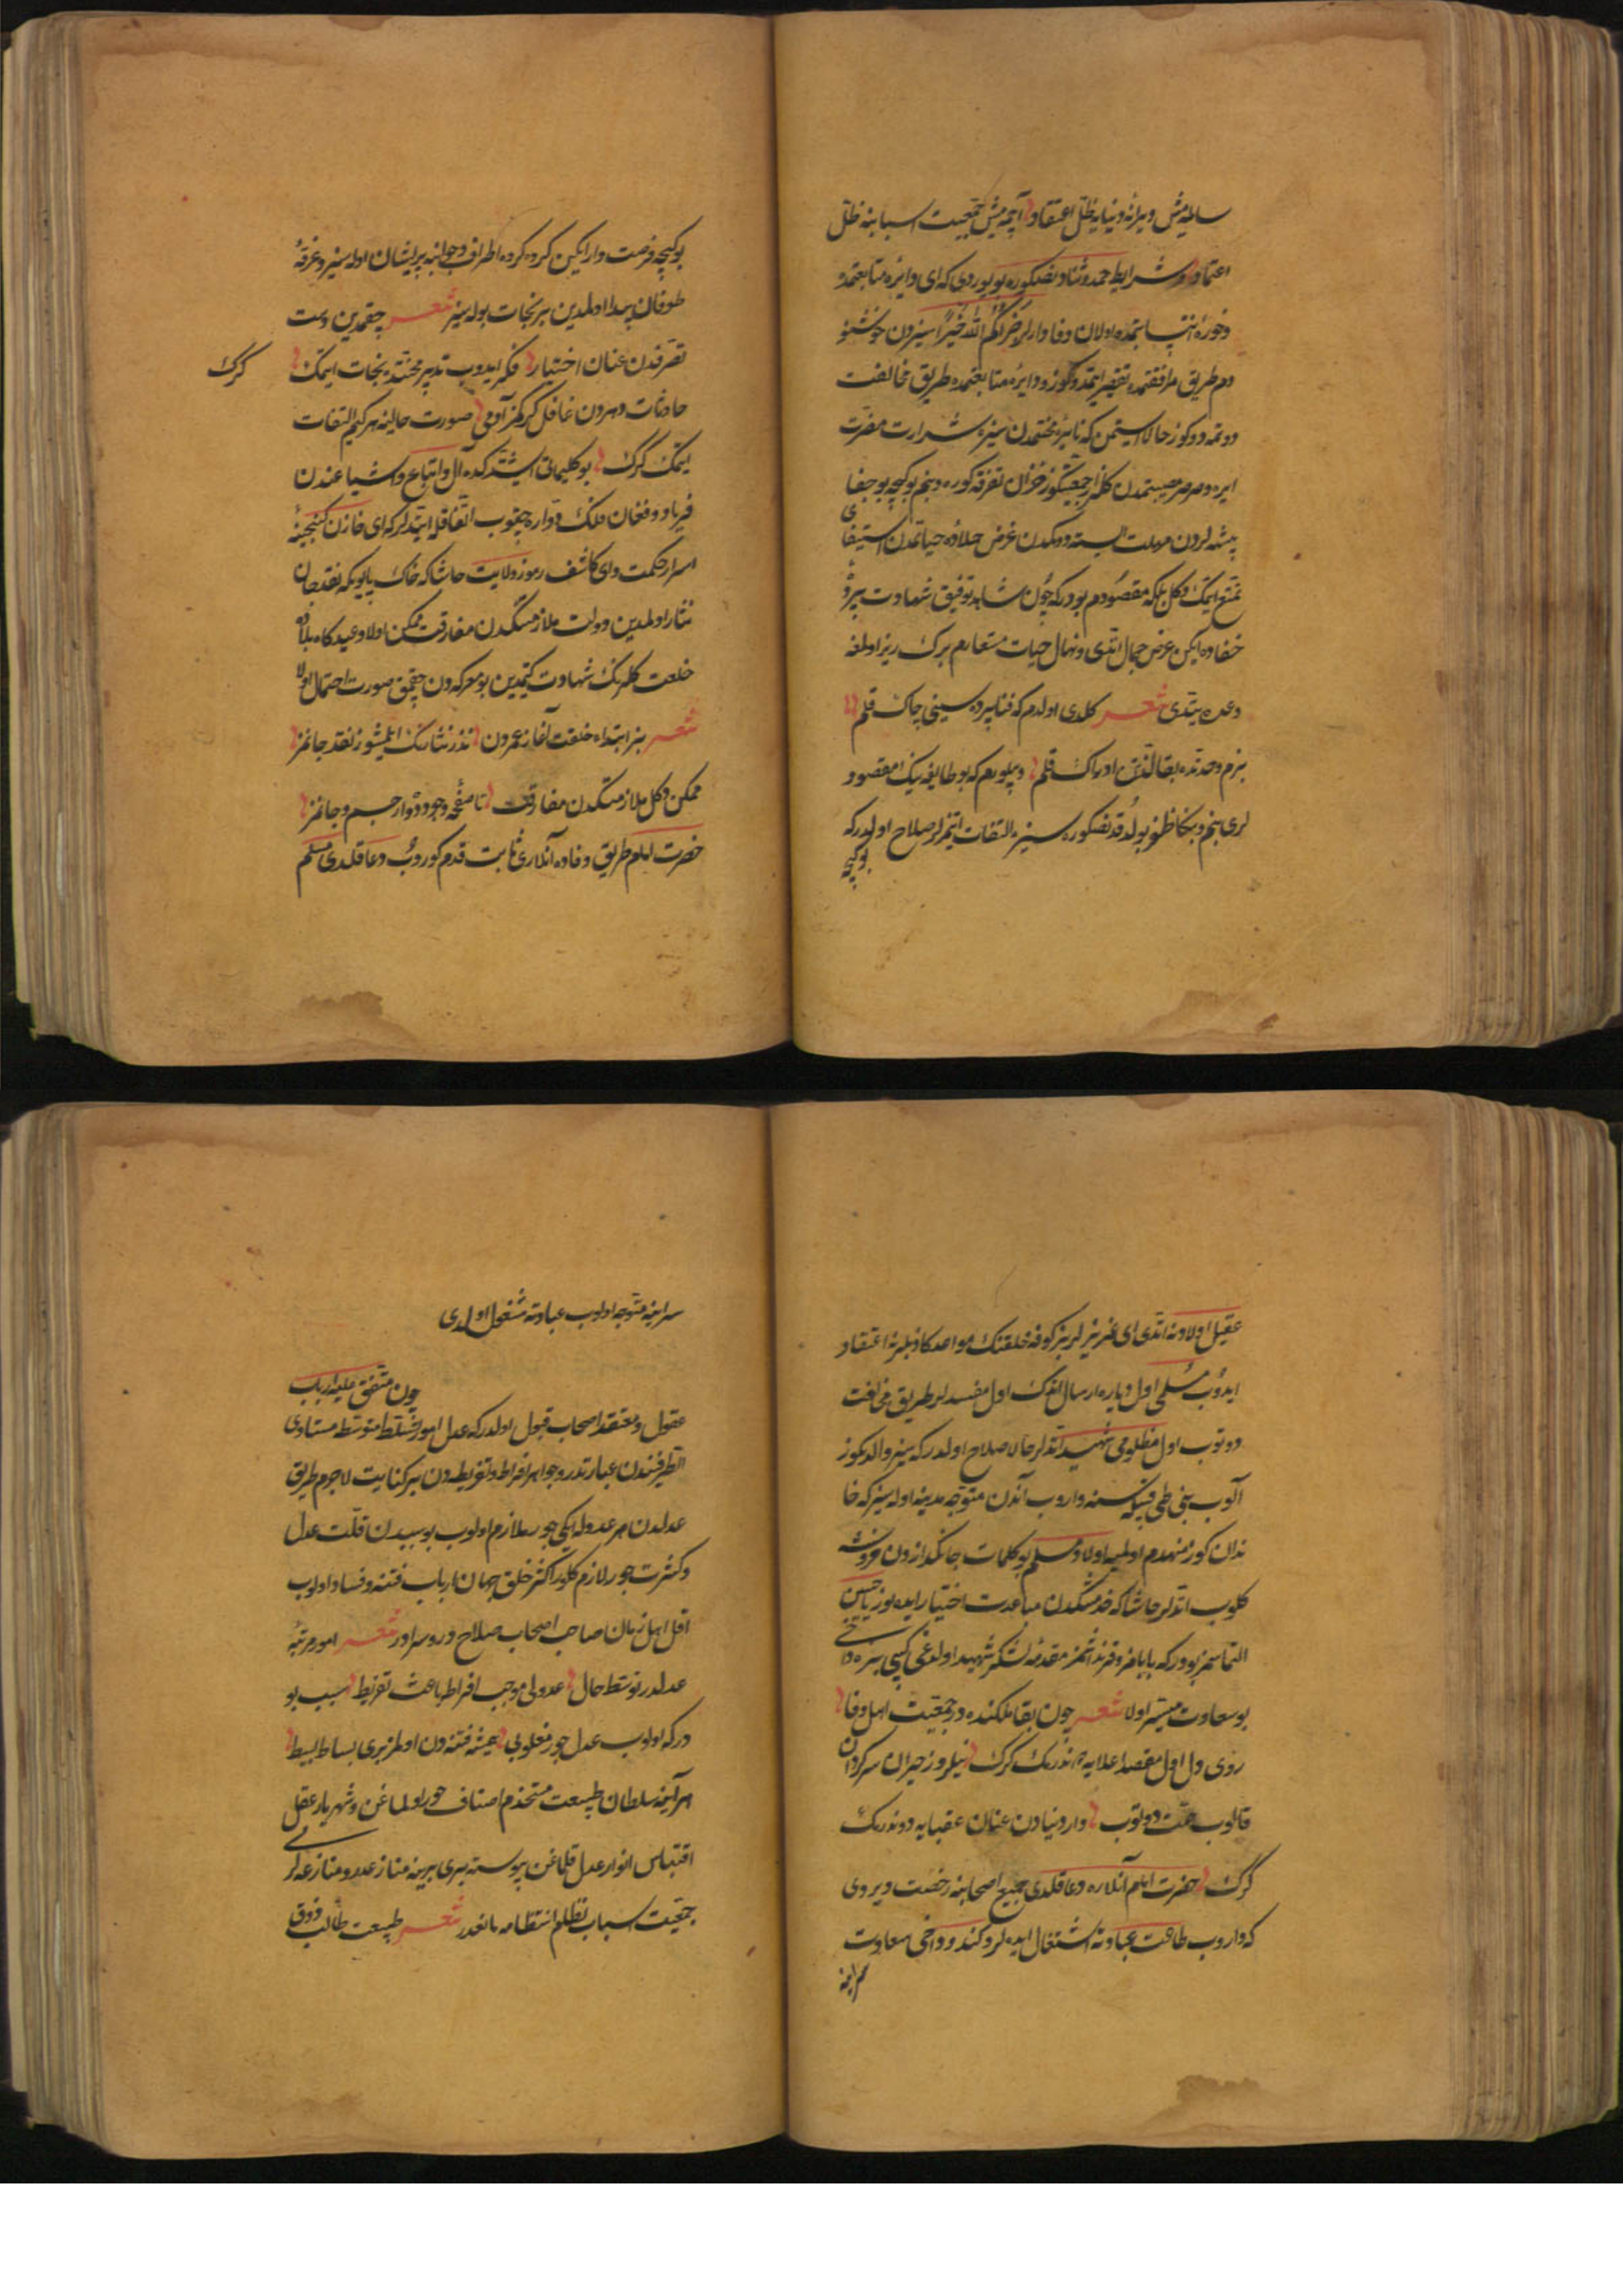 سالمیش ویرانه دنیایه ظل اعتقاد آچمه میش جمعیت اسبابنه ظل
اعتماد و شرایط حمد و ثنادنصکره بویوردی که ای دایره متابعتمده
و حوزه انتسابتمده اولان وفادارلر جزاکم الله خیرا سیزدن خوشنو
دم طریق مرافقتمده تقصیر ایتمدوکوز و دایره متابعتمده طریق مخالفت
دوتمدوکوز حالا ایستمن که نایره محنتمدن سیزه شرارت مضرت
ایره و صرصر مصیبتمدن کلزار جمعیتکوز خزان تفرقه کوره و بنم بو کیجه بو جفا
پیشه لردن مهلت ایسته دوکمدن غرض حلاوه حیاتمدن استیفای
تمتع ایتمک دکل بلکه مقصودم بودرکه چون شاهد توفیق شهادت پرده
خفاده ایکن عرض جمال اتدی و نهال حیات مستعارم برک ریز اولمغه
وعده یتدی شعر کلدی اولدم که فنا پرده سینی چاک قلم
بزم وحدتده بقا لذتن ادراک قلم و بیلورم که بو طایفه نیک مقصود
لری بنم و بنکا ظفر بولدقدنصکره سیزه التفات ایتمزلر صلاح اولدرکه
بوکیجه
بوکیجه فرصت وار ایکن کروه کروه اطراف و جوانبه پریشان اوله سیز و غرقهٔ
طوفان بلا اولمدین بر نجات بوله سیز شعر چقمدین دست
تصرفدن عنان اختیار فکر ایدوب تدبیر محنتدن نجات ایتمک کرک
حادثات دهردن غافل کرکمز آدمی صورت حالینه هر کیم التفات
ایتمک کرک بو کلیماتی ایشتدکده آل و اتباع و اشیاعندن
فریاد و فغان فلک دواره چقوب اتفاقله ایتدلر که ای خازن کنجینهٔ
اسرار حکمت و ای کاشف رموز ولایت حاشا که خاک پایوکه نقد جان
نثار اولمدین دولت ملازمتکدن مفارقت ممکن اولا و عیدکاه بلاده
خلعت کلرنک شهادت کیمدین بو معرکه دن چقمق صورت احتمال اولا
شعر بز ابتداء خلقت آغاز عمردن نذر نثارنک ایلمیشوز نقد جانمز
ممکن دکل ملازمتکدن مفارقت تا صفحه وجودده وار جسم و جانمز
حضرت امام طریق وفاده آنلاری ثابت قدم کوروب دعا قلدی مسلم
عقیل اولادنه اتدی ای عزیزلر بز کوفه خلقنک مواعد کاذبلرنه اعتقاد
ایدوب مسلمی اول دیاره ارسال اتدک اول مفسدلر طریق مخالفت
دوتوب اول مظلومی شهید اتدلر حالا صلاح اولدرکه سیز والدکوز
آلوب بنی طی قبیله سنه واروب آندن متوجه مدینه اوله سیز که خا
ندان کوز منهدم اولمیه اولاد مسلم بو کلمات جانکدازدن خروشه
کلوب اتدلر حاشا که خدمتکدن مباعدت اختیار ایده یوز یا حسین
التماسمز بودرکه بابامز و قرنداشمز مقدمه لشکر شهید اولدغی کیبی بزه داخی
بو سعادت میسر اولا شعر چون بقا ملکنده در جمعیت اهل وفا
روی دل اول مقصد اعلایه دوندرمک کرک نیلروز حیران سرکردان
قالوب محنت دوتوب وار دنیادن عنان عقبایه دوندرمک
کرک حضرت امام آنلاره دعا قلدی جمیع اصحابنه رخصت ویردی
که واروب طاعت عبادته اشتغال ایده لر و کندو داخی معاودت
سراینه
سراینه متوجه اولوب عبادته مشغول اولدی
چون متفق علیه ارباب
عقول و معتقد اصحاب قبول اولدرکه عدل امور تسلط متوسط مستاوی
الطرفندن عبارتدر و جور افراط و تفریطدن بر کنایت لاجرم طریق
عدلدن هر عدوله ایکی جور ملازم اولوب بو سببدن قلت عدل
و کثرت جور لازم کلور اکثر خلق جهان ارباب فتنه و فساد اولوب
اقل اهل زمان صاحب اصحاب صلاح و در و سراور شعر امور مرتبه
عدلدر توسط حال عدولی موجب افراط باعث تفریط سبب بو
درکه اولوب عدل جور مغلوبی همیشه فتنه دن اولمز بری بساط بسیط
هر آینه سلطان طبیعت مستخدم اصناف جور اولماغن و شهریار عقل
اقتباس انوار عدل قلماغن پیوسته بری برینه منازعدر و منازعه لری
جمعیت اسباب تظلم انتظامه مانعدر شعر طبیعت طالب ذوق